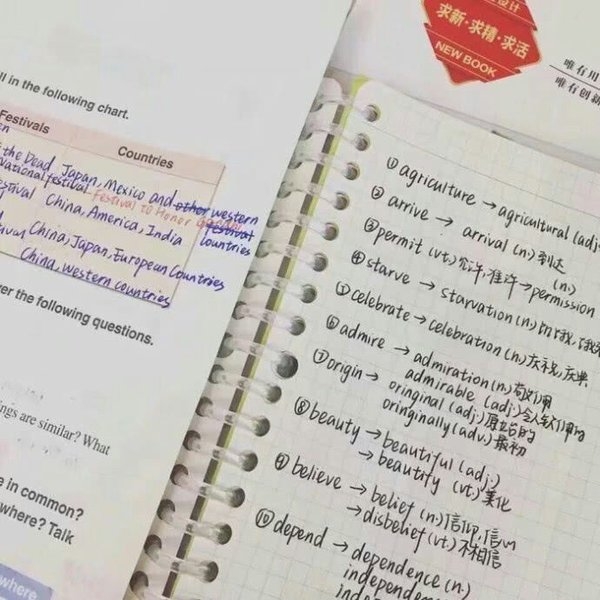 ll in the following chart.
Festivals
Countries
the Dead Japan, Mexico and other western
national festival Festival to Honor
festival
countries
China, America, India
China, Japan, European Countries
China, western countries
er the following questions.
ngs are similar? What
e in common?
where? Talk
where
求新·求精·求活
NEW BOOK
唯有用
唯有创新
① agriculture → agricultural (adj.
② arrive → arrival (n.) 到达
③ permit (vt.) 允许,准许 → permission
(n.)
④ starve → starvation (n) 饥饿,
⑤ celebrate → celebration (n.) 庆祝,庆典
⑥ admire → admiration (n.) 敬佩
admirable (adj.) 令人钦佩的
⑦ origin → oringinal (adj.) 原始的
oringinally (adv.) 最初
⑧ beauty → beautiful (adj.)
→ beautify (vt.) 美化
⑨ believe → belief (n.) 信仰,信心
→ disbelief (vt) 不相信
⑩ depend → dependence (n.)
independence